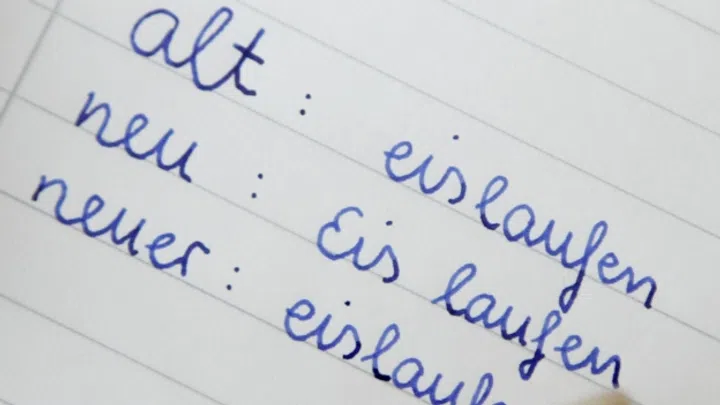 alt : eislaufen
neu : Eis laufen
neuer : eislauf